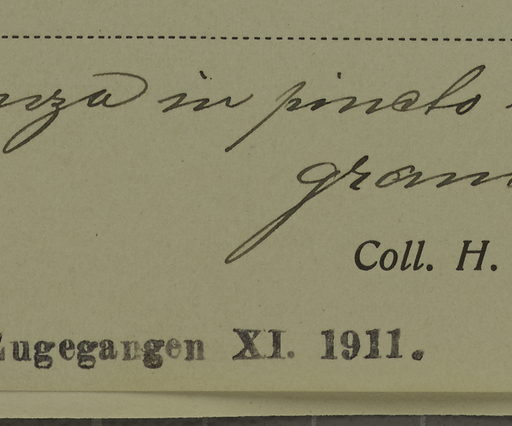 nza in pineto
gran
Coll. H.
Zugegangen XI. 1911.